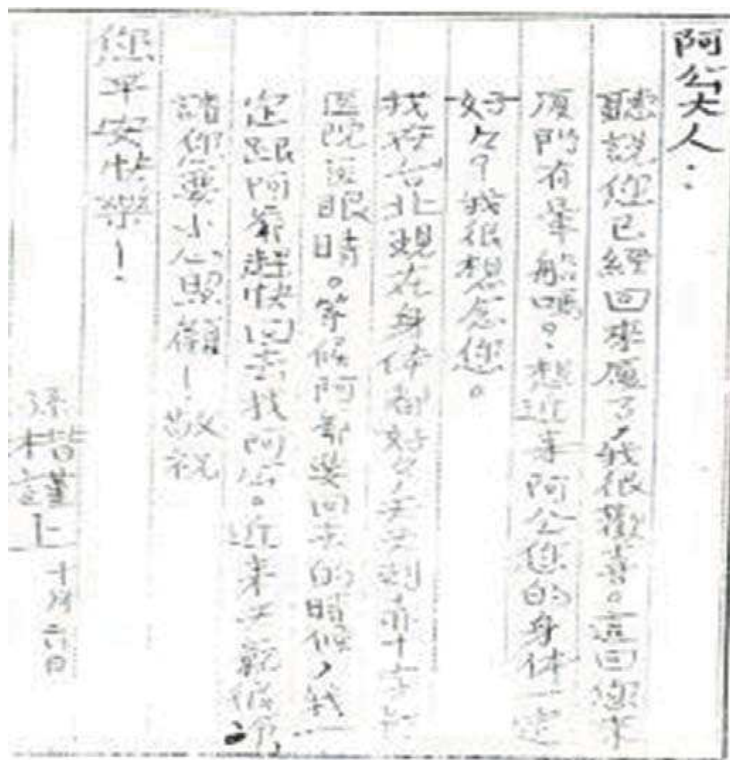 阿公大人：
聽說您已經回來廈了，我很歡喜。這回您來
廈門有暈船嗎？想近來阿公您的身体一定
好々？我很想念您。
我在台北現在身体都好々，天天到赤十字
医院医眼睛。等候阿爺要回去的時候，我一
定跟阿爺趕快回去找阿公。近來天氣很冷，
請您要小心照顧！敬祝
您平安快樂！
孫楷謹上 十月六日